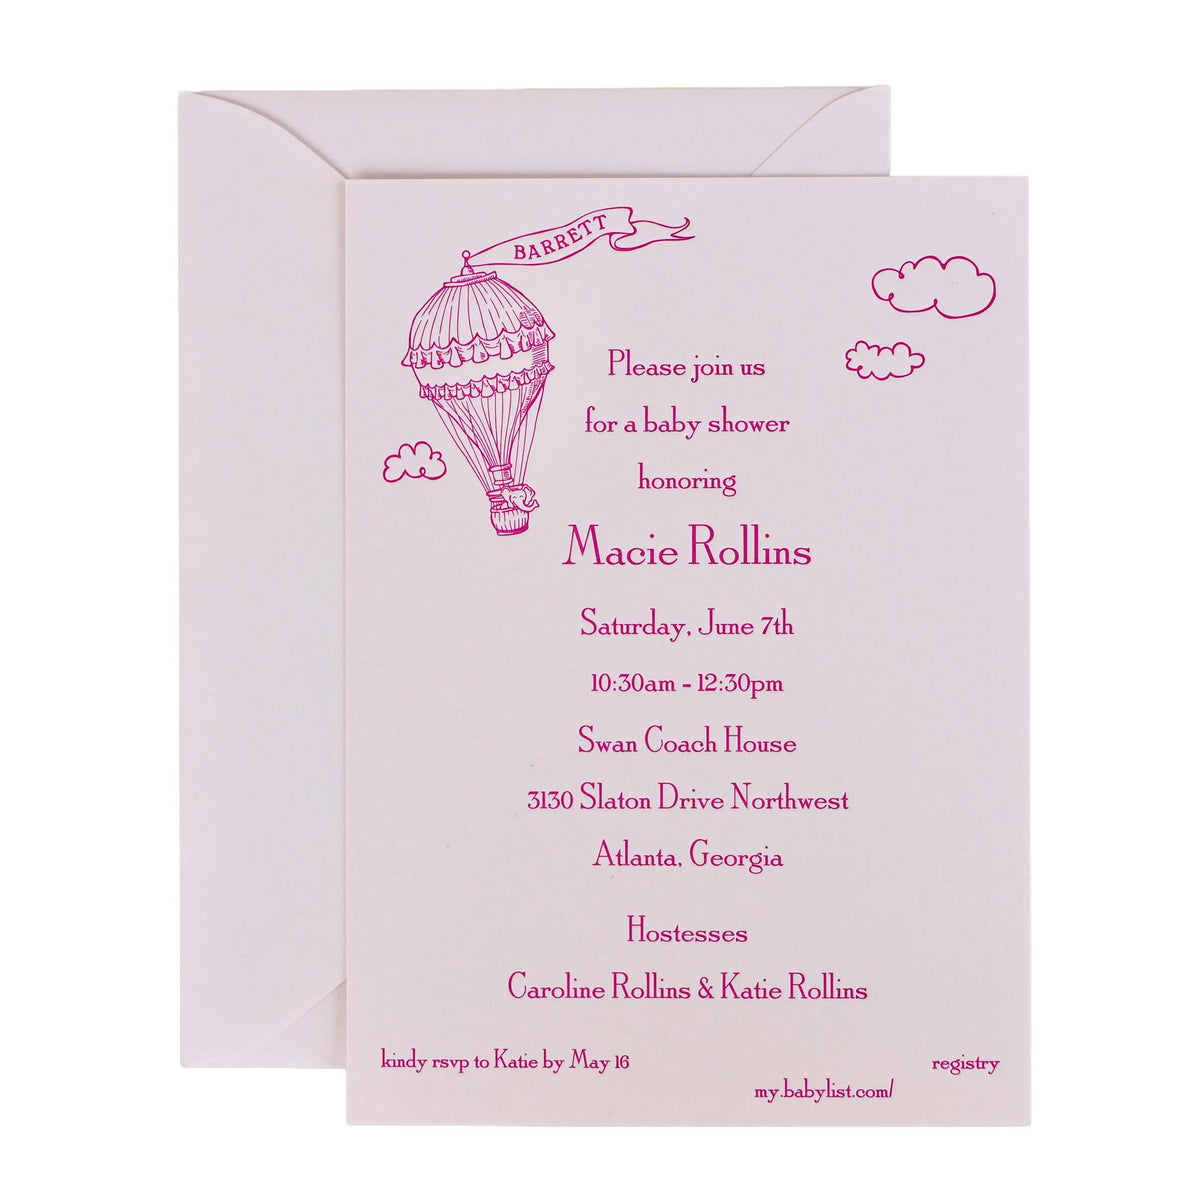 BARRETT
Please join us
for a baby shower
honoring
Macie Rollins
Saturday, June 7th
10:30am - 12:30pm
Swan Coach House
3130 Slaton Drive Northwest
Atlanta, Georgia
Hostesses
Caroline Rollins & Katie Rollins
kindy rsvp to Katie by May 16
registry
my.babylist.com/